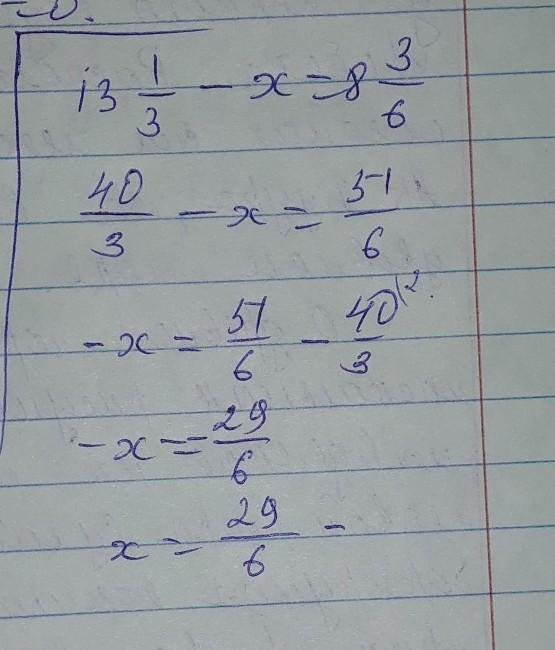 13 1/3 - x = 8 3/6
40/3 - x = 51/6
-x = 51/6 - 40/3 |2
-x = -29/6
x = 29/6 -